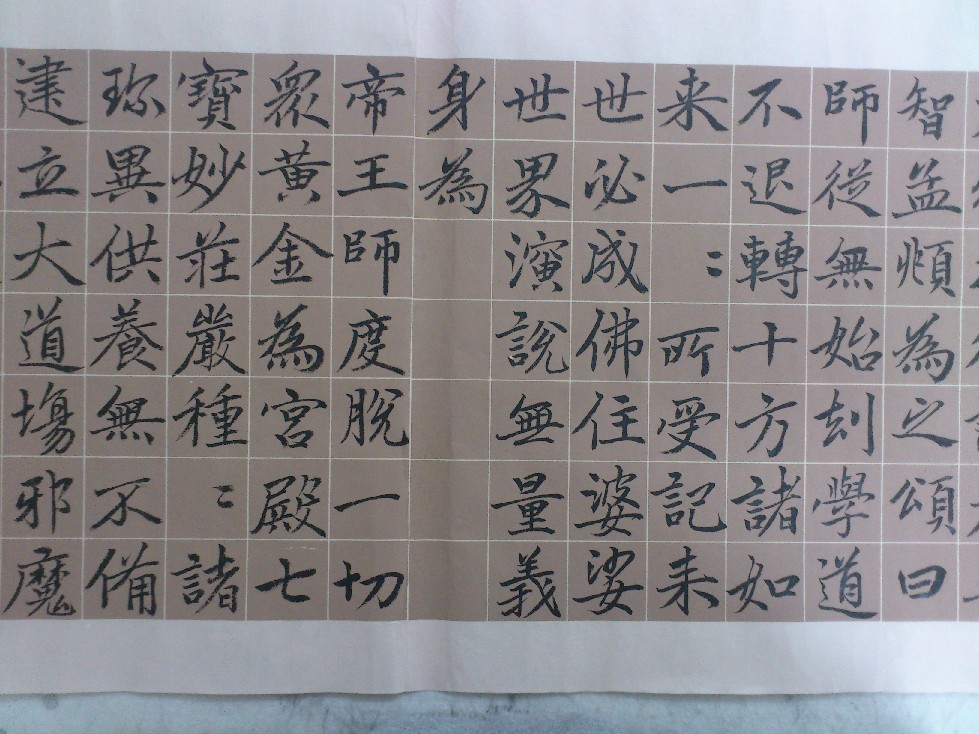 智孟煩為之頌曰
師從無始刧學道
不退轉十方諸如
来一〻所受記来
世必成佛住婆娑
世界演說無量義
身為
帝王師度脫一切
眾黃金為宮殿七
寶妙莊嚴種〻諸
珎異供養無不備
建立大道場邪魔